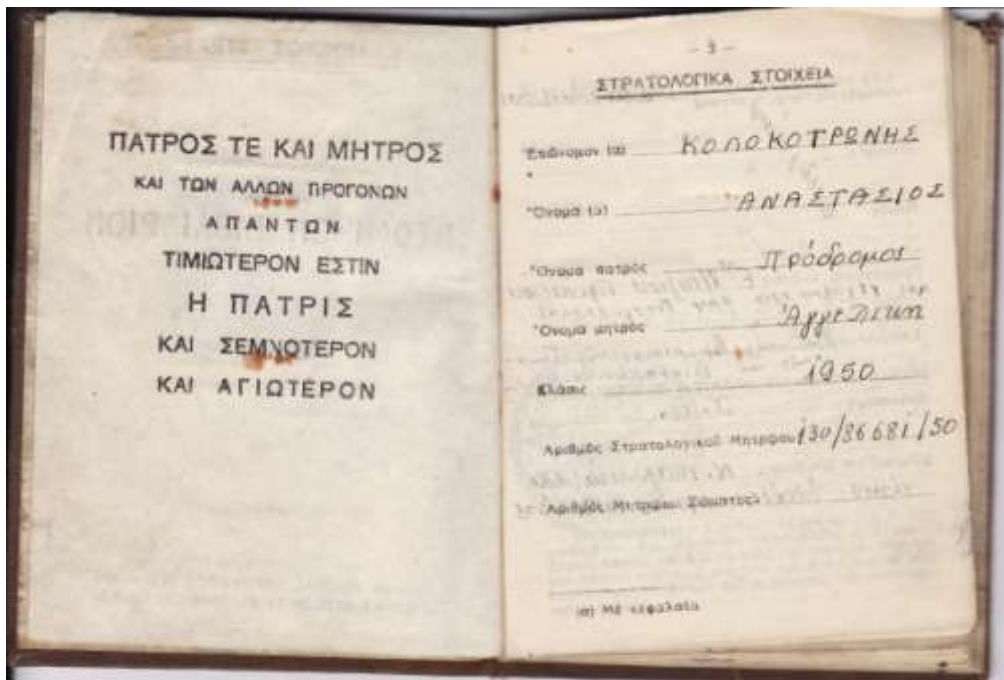 ΠΑΤΡΟΣ ΤΕ ΚΑΙ ΜΗΤΡΟΣ
ΚΑΙ ΤΩΝ ΑΛΛΩΝ ΠΡΟΓΟΝΩΝ
ΑΠΑΝΤΩΝ
ΤΙΜΙΩΤΕΡΟΝ ΕΣΤΙΝ
Η ΠΑΤΡΙΣ
ΚΑΙ ΣΕΜΝΟΤΕΡΟΝ
ΚΑΙ ΑΓΙΩΤΕΡΟΝ
- 3 -
ΣΤΡΑΤΟΛΟΓΙΚΑ ΣΤΟΙΧΕΙΑ
Ἐπώνυμον (α) ΚΟΛΟΚΟΤΡΩΝΗΣ
Ὄνομα (α) ἈΝΑΣΤΑΣΙΟΣ
Ὄνομα πατρός Πρόδρομος
Ὄνομα μητρός Ἀγγελική
Κλάσις 1950
Ἀριθμός Στρατολογικοῦ Μητρώου 130/86681/50
Ἀριθμός Μητρώου Σώματος
(α) Μέ κεφαλαῖα